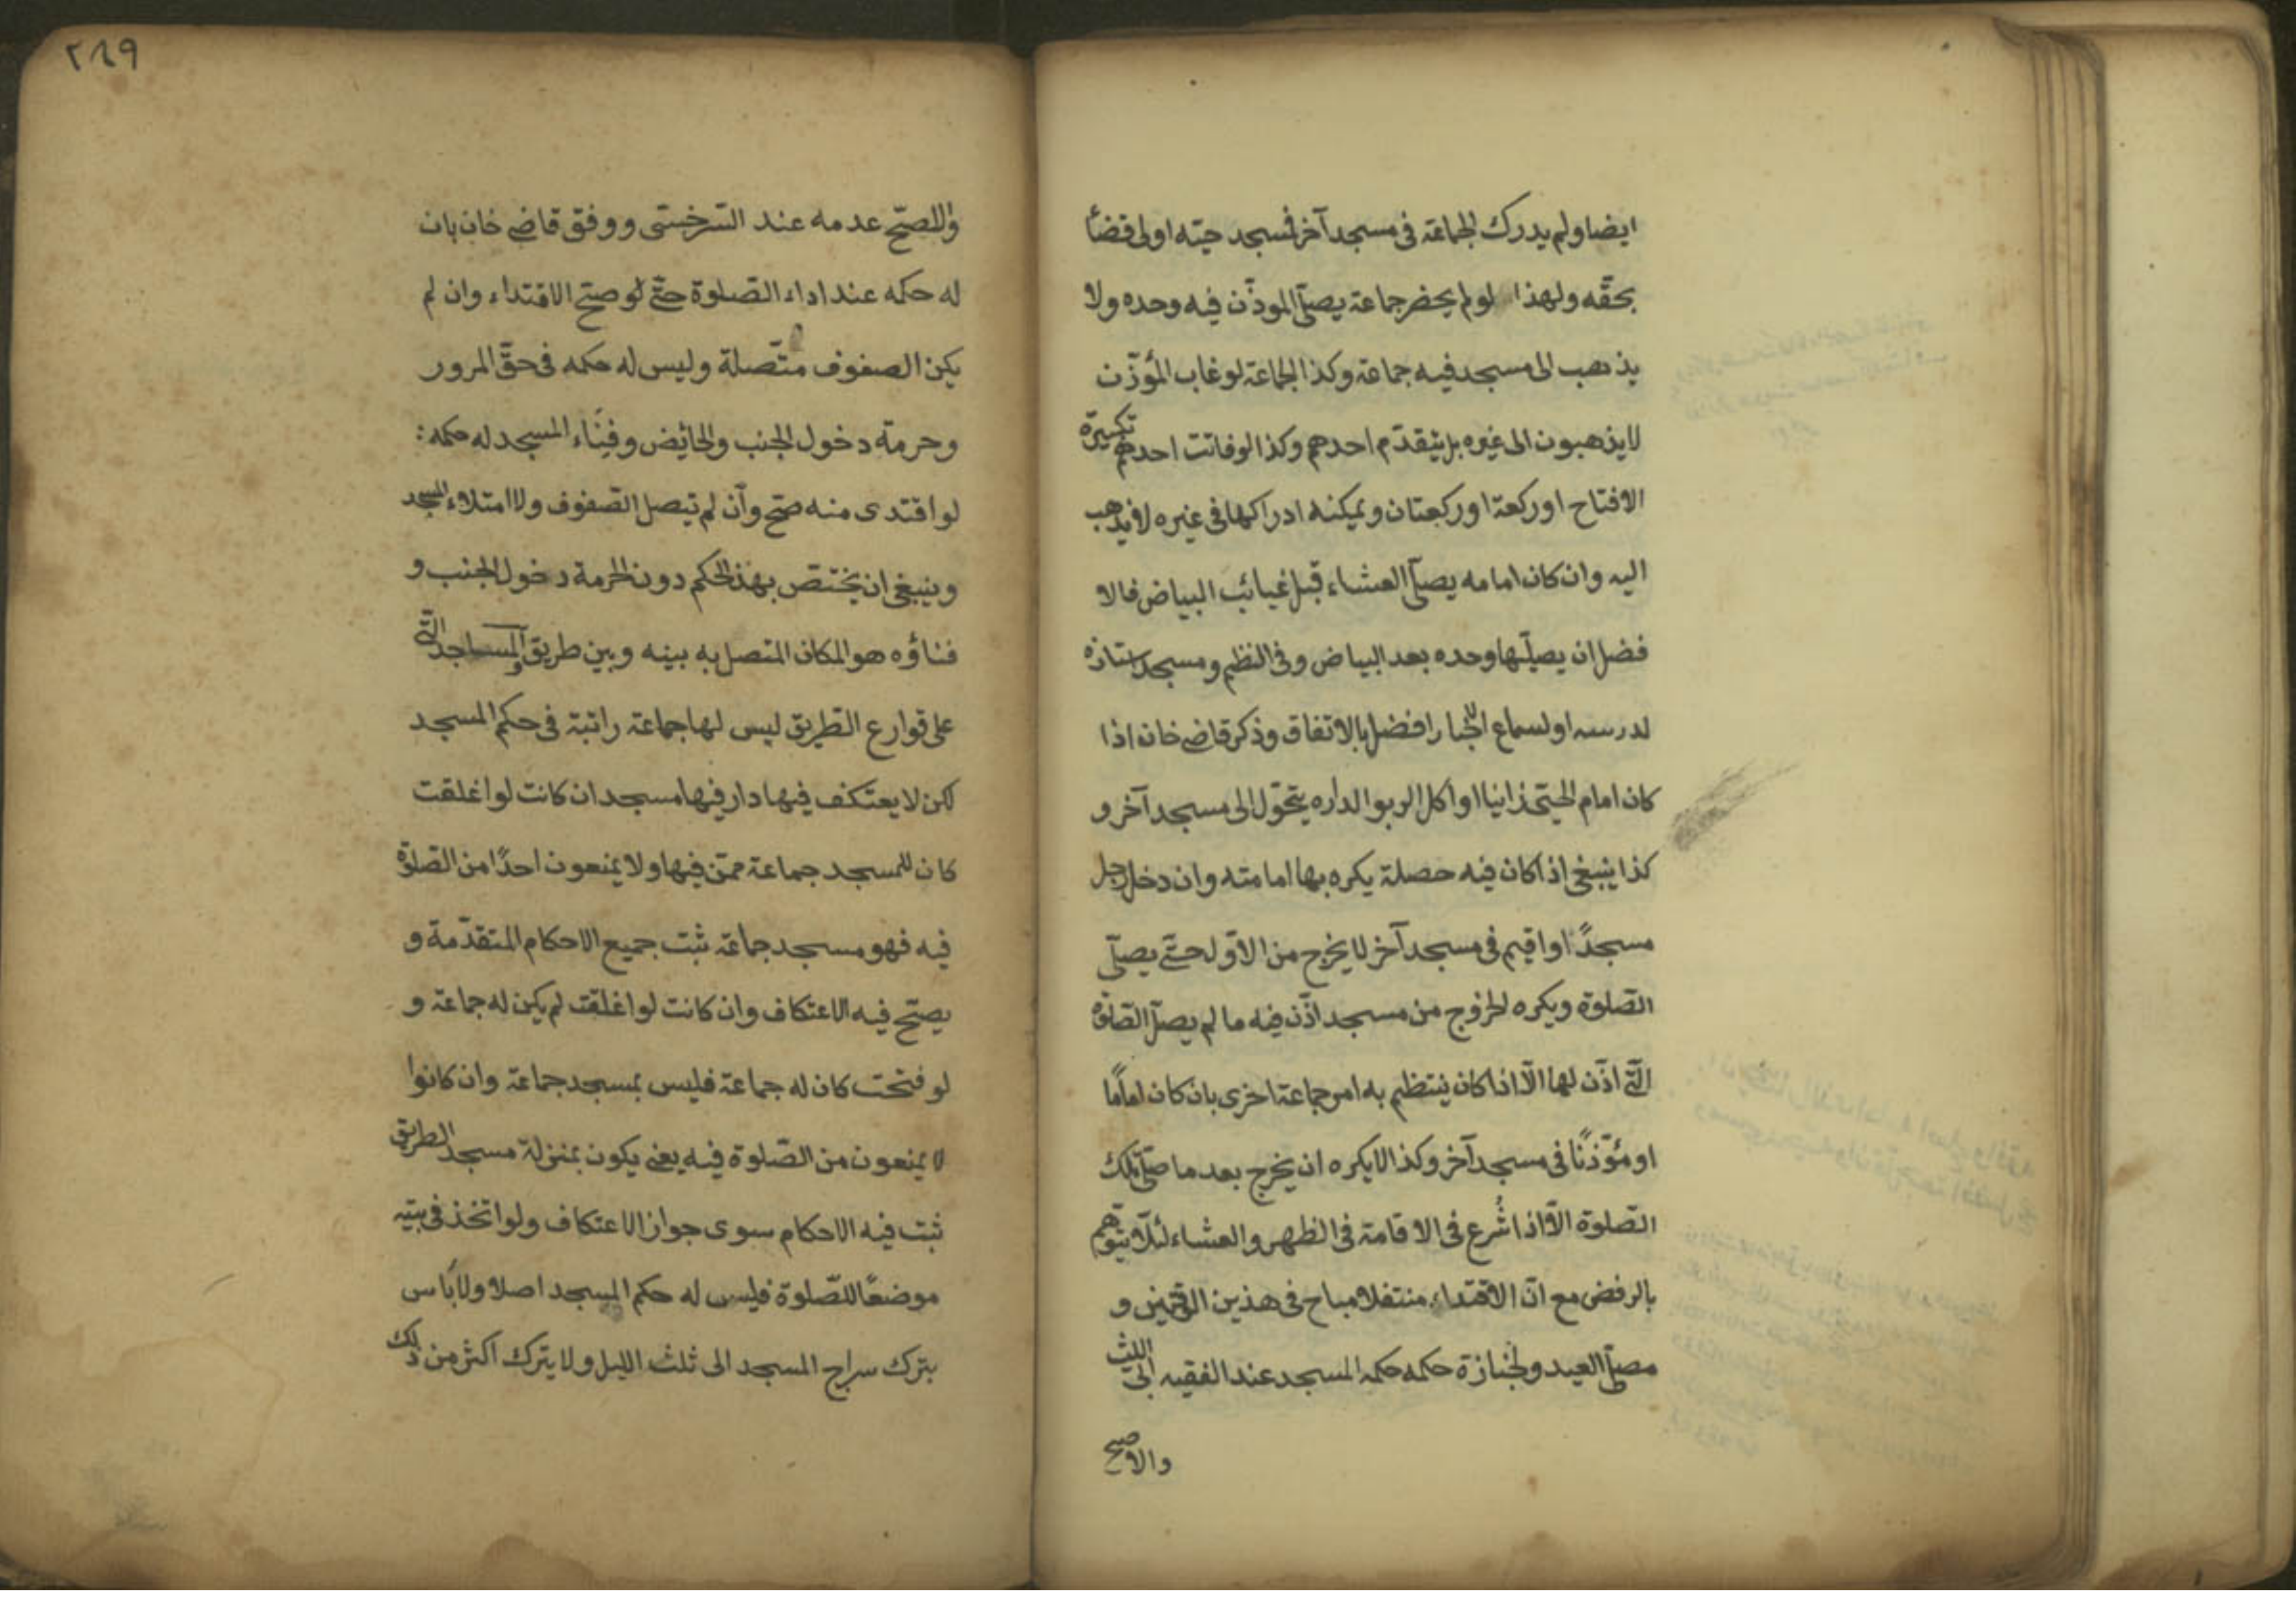 ايضا ولم يدرك الجماعة فى مسجد آخر فمسجد حيّه اولى قضأ
بحقّه ولهذا لو لم يحضر جماعة يصلّى الموذّن فيه وحده ولا
يذهب الى مسجد فيه جماعة وكذا الجماعة لو غاب المؤذّن
لا يذهبون الى غيره بل يتقدّم احدهم وكذا لو فاتت احدهم تكبيرة
الافتاح او ركعة او ركعتان ويمكنه ادراكها فى غيره لا يذهب
اليه وان كان امامه يصلّى العشاء قبل غيائب البياض فالا
فضل ان يصلّيها وحده بعد البياض وفى النظم ومسجد استاذه
لدرسه او لسماع الاخبار افضل بالاتفاق وذكر قاضى خان اذا
كان امام الحيّى زانيا او اكل الربوا الداره يتحوّل الى مسجد آخر و
كذا ينبغى اذا كان فيه حصلة يكره بها امامته وان دخل رجل
مسجدًا او اقيم فى مسجد آخر لا يخرج من الاوّل حتّى يصلّى
الصّلوة ويكره الخروج من مسجد اذّن فيه ما لم يصلّ الصّلوة
الّتى اذّن لها الّا اذا كان ينتظم به امر جماعة اخرى بان كان امامًا
او مؤذّنًا فى مسجد آخر وكذا لا يكره ان يخرج بعد ما صلّى تلك
الصّلوة الّا اذا شُرع فى الاقامة فى الظهر والعشاء لئلّا يتوهم
بالرفض مع انّ الاقتداء منتفلا مباح فى هذين الوقتين و
مصلّى العيد والجنازة حكمه حكم المسجد عند الفقيه ابى الليث
والاصح
٢٨٩
والاصحّ عدمه عند السّرخسّى ووفق قاضى خان بان
له حكمه عند اداء الصّلوة حتّى لو صتح الاقتداء وان لم
يكن الصفوف متّصلة وليس له حكمه فى حقّ المرور
وحرمة دخول الجنب والحائض وفِنَاء المسجد له حكمه:
لو اقتدى منه صحّ وان لم تيصل الصّفوف ولا امتلاء المسجد
وينبغى ان يختصّ بهذ الحكم دون الحرمة دخول الجنب و
فناؤه هو المكان المتصل به بينه وبين طريق والمساجد الّتى
على قوارع الطّريق ليس لها جماعة راتبة فى حكم المسجد
لكن لا يعتكف فيها دار فيها مسجد ان كانت لو اغلقت
كان للمسجد جماعة ممّن فيها ولا يمنعون احدًا من الصّلوة
فيه فهو مسجد جماعة ثبت جميع الاحكام المتقدّمة و
يصحّ فيه الاعتكاف وان كانت لو اغلقت لم يكن له جماعة و
لو فتحت كان له جماعة فليس بمسجد جماعة وان كانوا
لا يمنعون من الصّلوة فيه يعنى يكون بمنزلة مسجد الطريق
ثبت فيه الاحكام سوى جواز الاعتكاف ولو اتخذ فى بيته
موضعًا للصّلوة فليس له حكم المسجد اصلا ولا بأس
بترك سراج المسجد الى ثلث الليل ولا يترك اكثر من ذلك